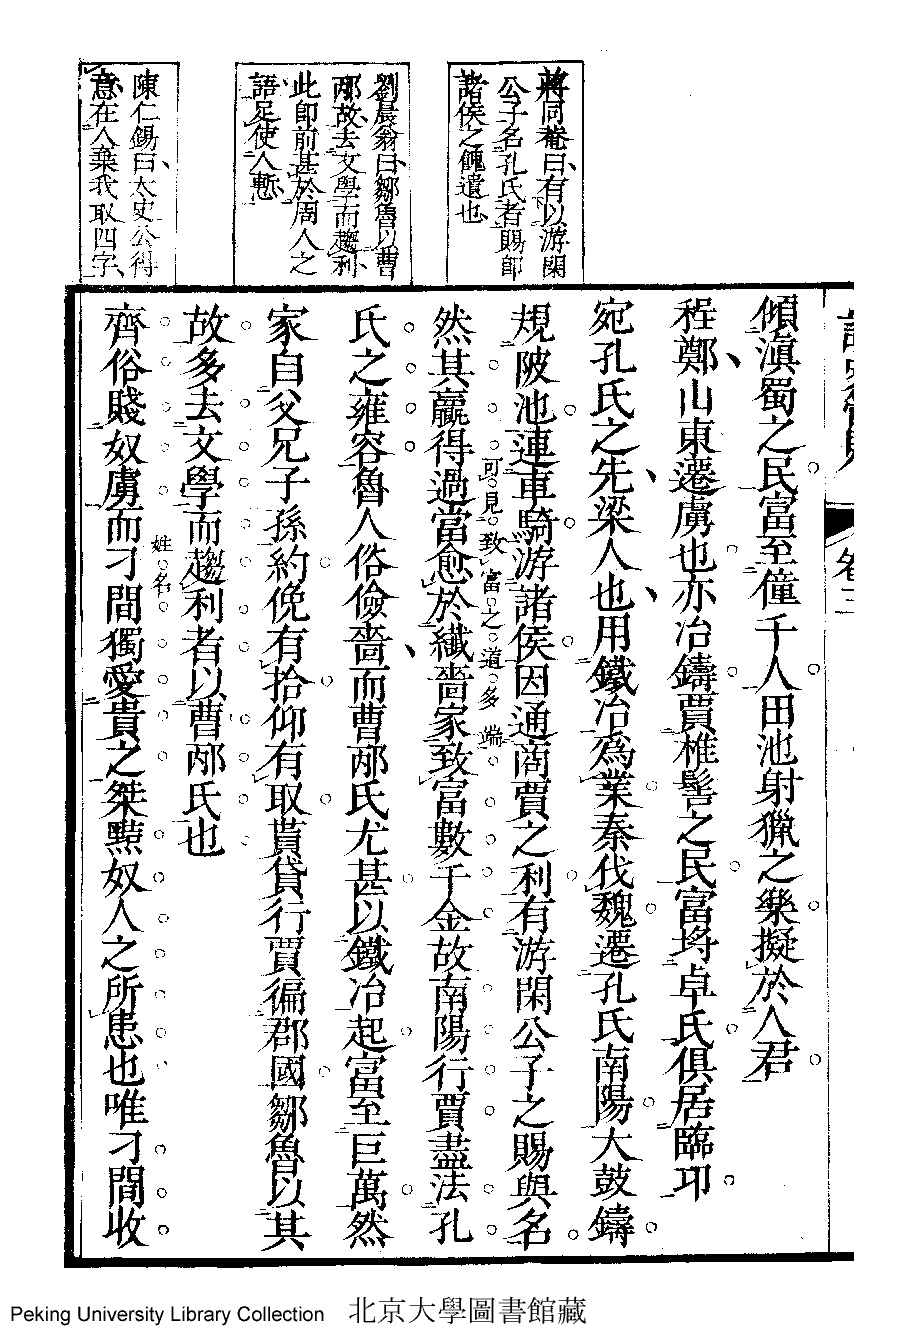 蔣同菴曰有以游閑
公子名孔氏者賜卽
諸侯之餽遺也
劉晨翁曰鄒魯以曹
邴故去文學而趨利
此卽前甚於周人之
語足使人慙
陳仁錫曰太史公得
意在人棄我取四字
卷三
傾滇蜀之民富至僮千人田池射獵之樂擬於人君
程鄭山東遷虜也亦冶鑄賈椎髻之民富埒卓氏俱居臨邛
宛孔氏之先梁人也用鐵冶爲業秦伐魏遷孔氏南陽大鼓鑄
規陂池連車騎游諸侯因通商賈之利有游閑公子之賜與名
然其贏得過當愈於纖嗇家致富數千金故南陽行賈盡法孔
可見致富之道多端
氏之雍容魯人俗儉嗇而曹邴氏尤甚以鐵冶起富至巨萬然
家自父兄子孫約俛有拾仰有取貰貸行賈徧郡國鄒魯以其
故多去文學而趨利者以曹邴氏也
齊俗賤奴虜而刁間獨愛貴之桀黠奴人之所患也唯刁間收
姓名
Peking University Library Collection 北京大學圖書館藏